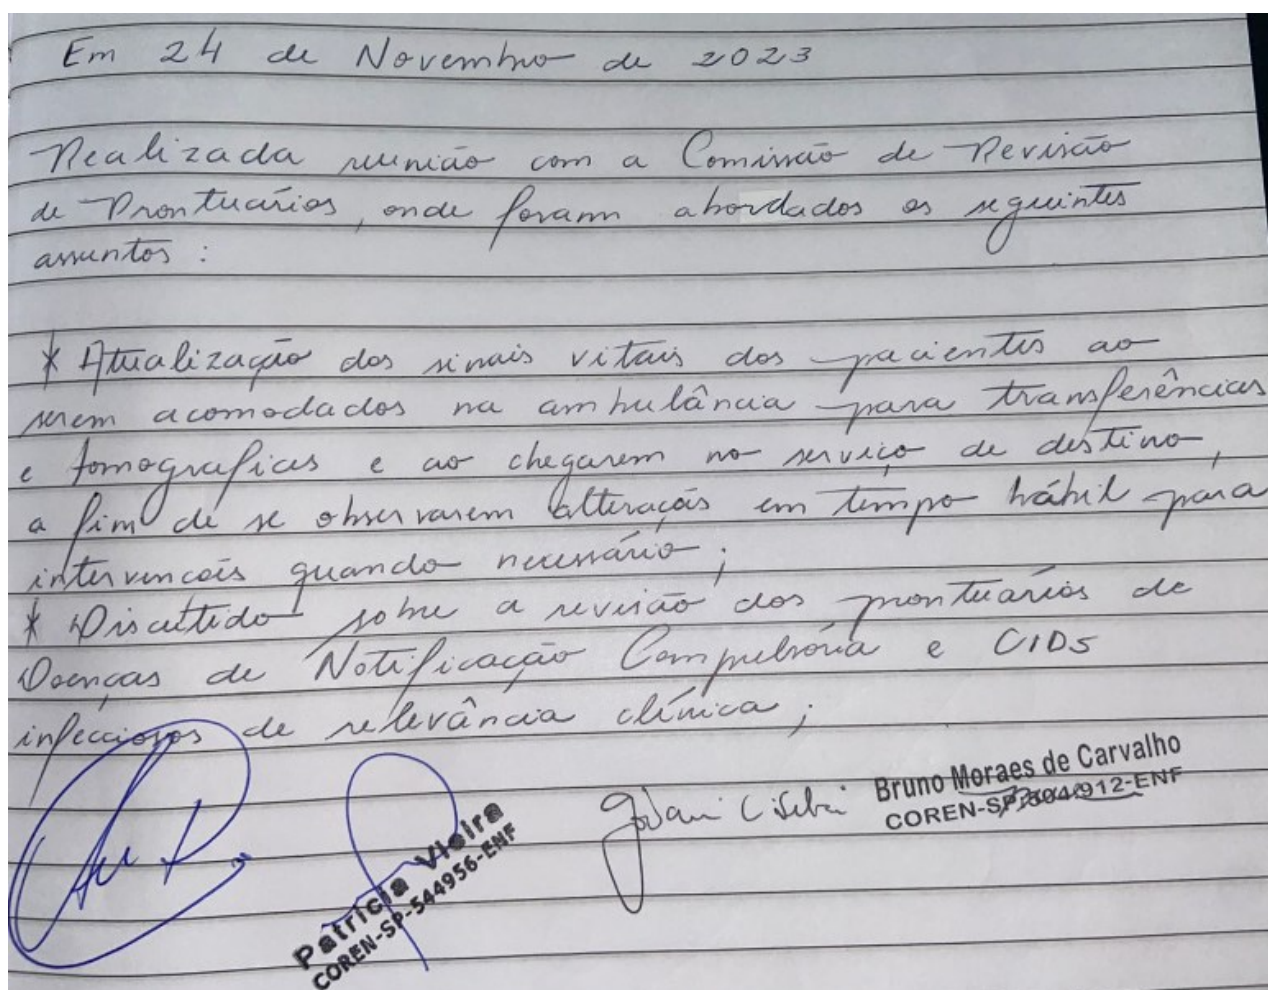 Em 24 de Novembro de 2023
Realizada reunião com a Comissão de Revisão
de Prontuários, onde foram abordados os seguintes
assuntos :
* Atualização dos sinais vitais dos pacientes ao
serem acomodados na ambulância para transferências
e tomografias e ao chegarem no serviço de destino,
a fim de se observarem alterações em tempo hábil para
intervencões quando necessário ;
* Discutido sobre a revisão dos prontuários de
Doenças de Notificação Compulsória e CIDs
infecciosos de relevância clínica ;
Bruno Moraes de Carvalho
COREN-SP 504.912-ENF
Patricia Vieira
COREN-SP-544956-ENF